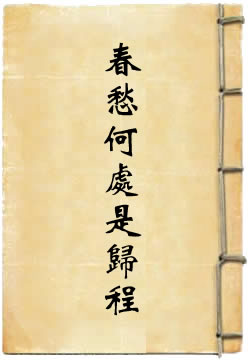 春愁何處是歸程